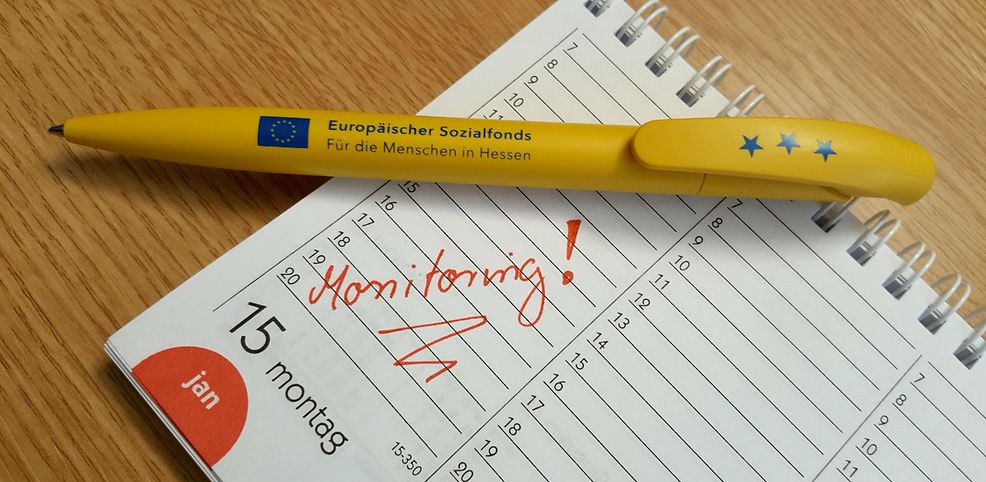 Europäischer Sozialfonds
Für die Menschen in Hessen
7
8
9
10
11
15
16
17
18
19
20
Monitoring!
15 montag
jan
15-350
7
8
9
10
11
12
13
14
15
16
17
18
19
20
7
8
9
10
11